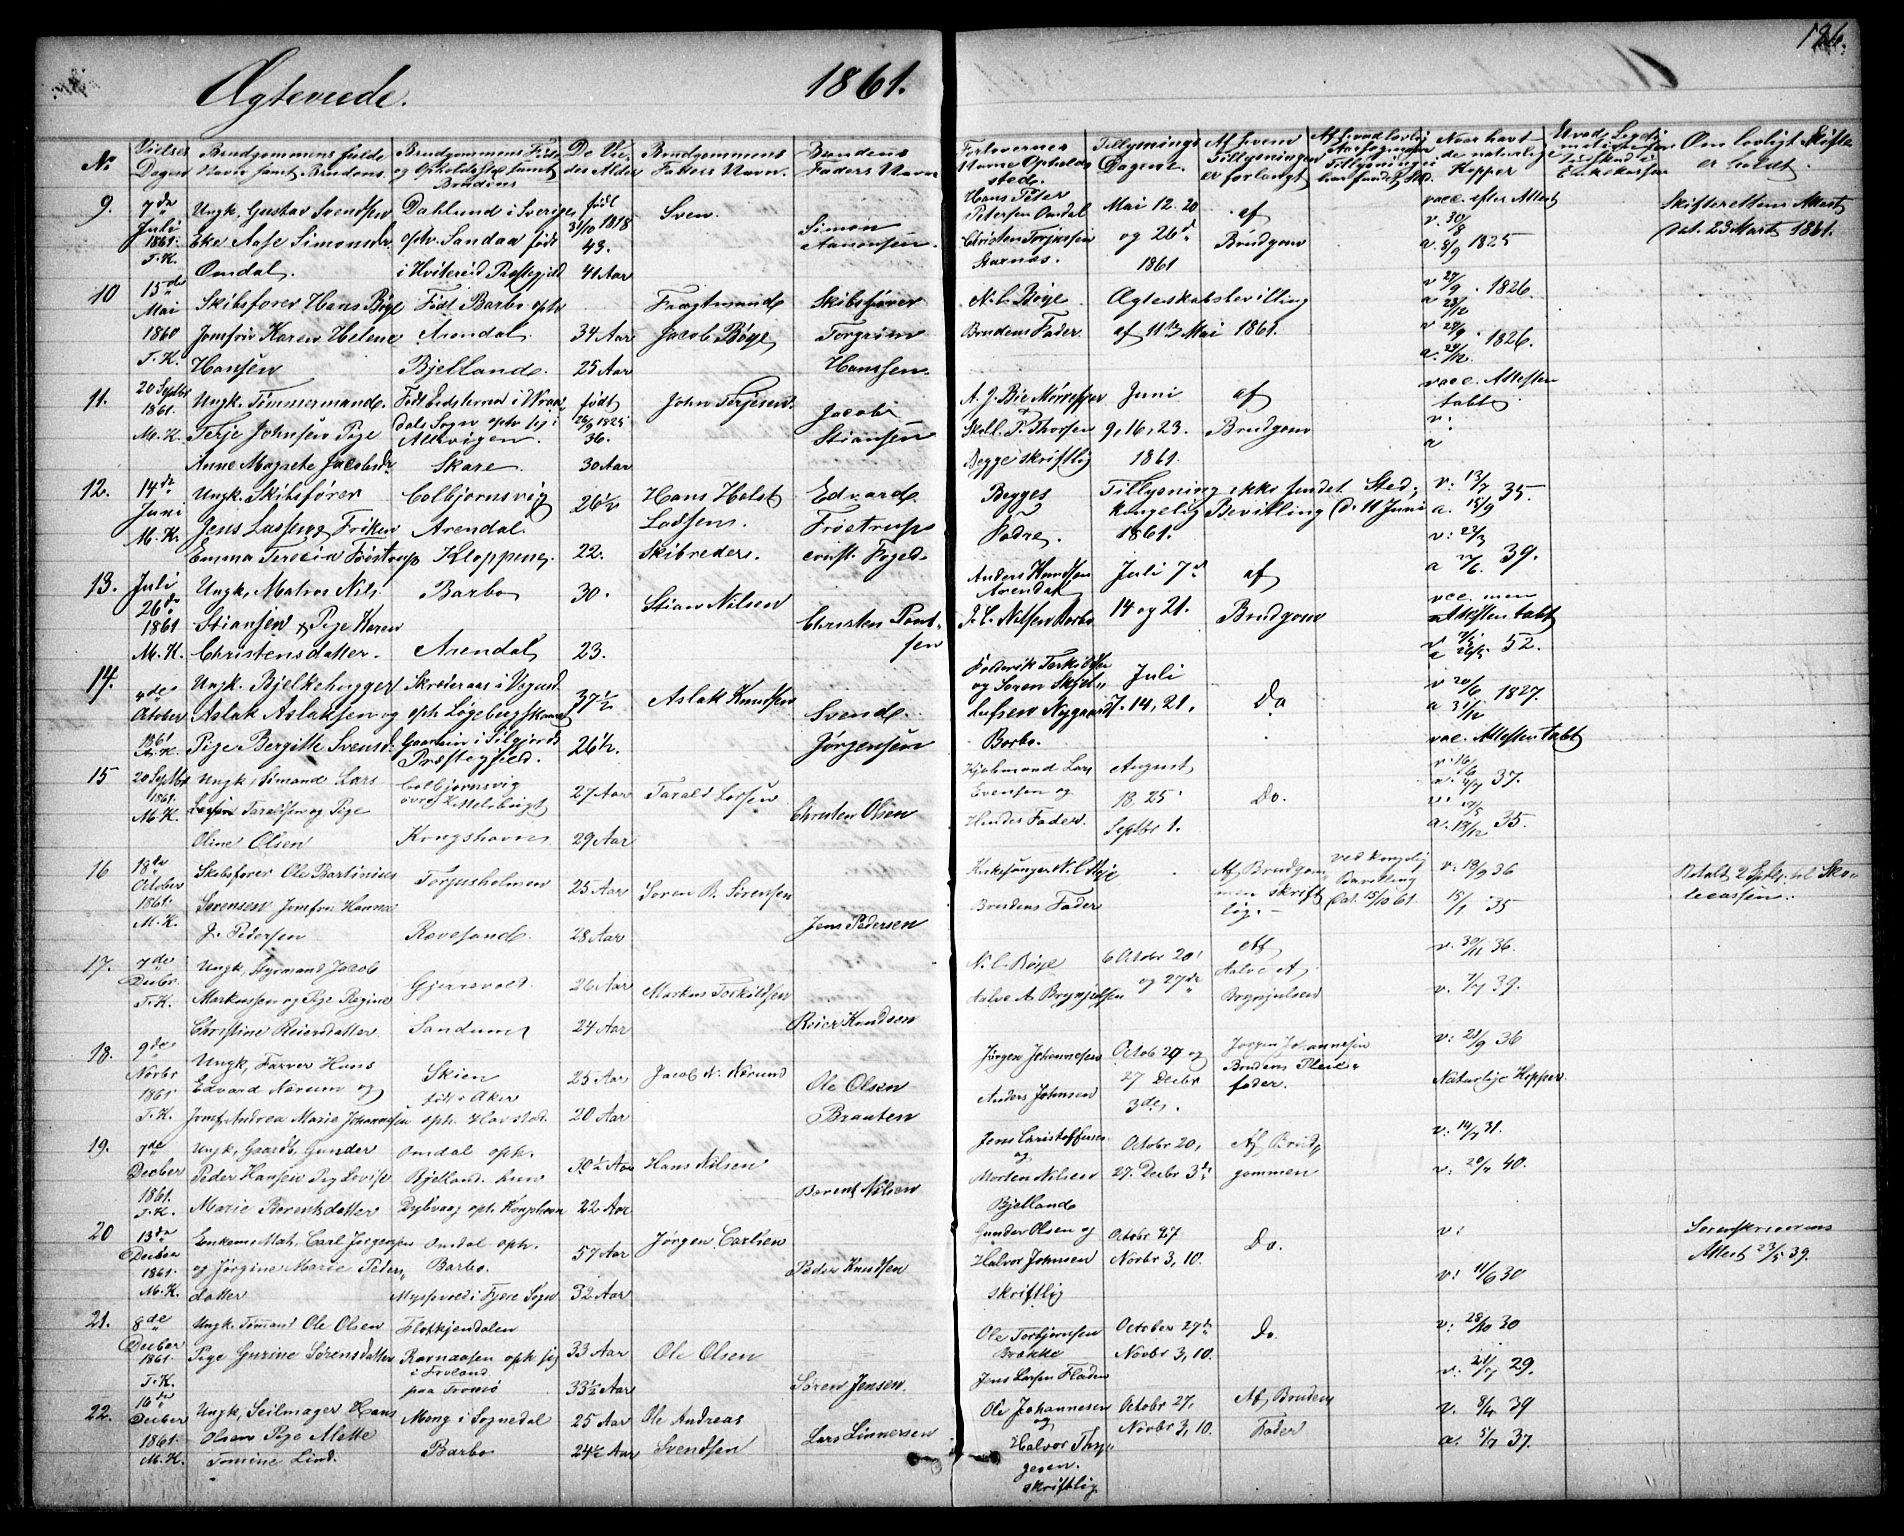 186.
Ægteviede. 1861.
No
Vielses Dagen
Brudgommens fulde Navn samt Brudens.
Brudgommens Føde og Opholdssted samt Brudens
De Viedes Alder
Brudgommens Faders Navn.
Brudens Faders Navn
Forlovernes Navne Opholdssted.
Tillysnings Dagene.
Af hvem Tillysningen er forlangt
Havt de naturlige Kopper
Om lovligt Skifte er holdt.
9.
7de Juli 1861. T.K.
Ungk. Gustav Svendsen
Eke Aase Simonsdr
Omdal.
Dahlund i Sverige
oph. Sandaa født
i Hvitereid Prestegjeld
født 31/10 1818
43.
41 Aar
Sven.
Simon
Aanonsen.
Hans Peter
Petersen Omdal
Christen Torjussen
Mai 12. 20
og 26de
1861
af
Brudgom
vacc. efter Attest
v. 30/8
a. 8/9 1825
Skifterettens Attest
dat. 23 Marts 1861.
10
15de Mai 1860 T.K.
Skibsfører Hans Bøye
Jomfru Karen Helene
Hansen
Født Barbo oph
Arendal
Bjelland.
34 Aar
25 Aar
Fragtmand
Jacob Bøye
Skibsfører
Torgrim
Hanssen.
N. C. Bøye
Brudens Fader.
Ægteskabsbevilling
af 11te Mai 1861.
v 27/9
a 28/12 1826.
v 28/9
a. 24/12 1826.
11.
20 Septbr 1861. M.K.
Ungk. Tømmermand.
Terje Johnsen Pige
Anne Magrete Jacobsdr
Skare.
født
26/9 1825
36.
30 Aar
John Terjesen.
Jacob
Stiansen
A. J. Bie
P. Thorsen
Begge skriftlig
Juni
9, 16, 23.
1861.
af
Brudgom
vacc. Attesten
tabt.
v.
a
12.
14de Juni M.K.
Ungk. Skibsfører
Jens Lassen
Colbjørnsvig
Arendal.
Kloppene,
26½
22.
Hans Holst
Skibreder.
Edvard
Frøstrup
const. Foged.
Begges
Fædre.
Tillysning ikke fundet Sted,
kongelig Bevilling d. 11 Juni
1861.
v: 13/7
a. 15/9 35.
v: 22/3
a 27/6. 39.
13.
Juli 26de 1861 M.K.
Ungk. Matros Nils
Stiansen & Pige Karen
Christensdatter.
Barbo
Arendal
30.
23.
Stian Nilsen
Christen Pontsen
Anders Knudsen
Arendal
J. C. Nilsen Barbo
Juli 7de
14 og 21.
af
Brudgom
vcc. men
Attesten tabt
v 7/5
a 26/5 52.
14.
4de October 1861 M.K.
Ungk. Bjelkehugger
Aslak Aslaksen og
Pige Bergitte Svensd.
Præstegjeld.
37½
26½.
Aslak Knudsen
Svend.
Jørgensen
og Søren
Nygaard
Barbo.
Juli
7. 14, 21,
Do
v 20/6
a 31/12 1827.
vac. Attesten tabt
15
20 Septbr 1861. M.K.
Ungk. Sømand Lars
Taraldsen og Pige
Oline Olsen
Colbjørnsvig
Kongshavn
27 Aar
29 Aar
Tarald Larsen
Christen Olsen
Lars
Evensen og
Hendes Fader.
August
18. 25.
Septbr 1.
Do.
v. 16/6
a. 4/7 37.
v. 17/5
a. 19/12 35.
16
18de October 1861. M.K.
Skibsfører Ole Bartinius
Sørensen Jomfru Hanna
J. Pedersen
Torjusholmen
Revesand.
25 Aar
28 Aar
Søren B. Sørensen
Jens Pedersen
Kirkesanger N. C. Bøye
Brudens Fader
Af Brudgommen skriftlig. –
ved Kongelig
Bevilling
Dat. 15/10 61.
v: 19/9 36
15/1 35
Betalt 2 Spdlr. til Skolecassen.
17.
7de Decbr. T.K.
Ungk, Styrmand Jacob
Markussen og Pige Regine
Christine Reiersdatter
Gjerrevold
Sandum
26 Aar
24 Aar
Markus Torkildsen
Reier Knudsen
N. C. Bøye
Aalve A. Brynjulfsen
Octobr 20
og 27de
Af
Aalve A.
Brynjulsen
v. 30/11 36.
v. 7/7 39.
18.
9de Novbr 1861 T.K.
Ungk, Farver Hans
Edvard Nørum og
Jomf. Andrea Marie Johannesen
Skien
født i Aker
oph. Havstad.
25 Aar
20 Aar
Jacob N. Nørum
Ole Olsen
Braaten
Jørgen Johannesen
Anders Johnsen
Octob 20 og
27 Decbr
3de.
Jørgen Johannesen
Brudens Pleiefader.
v: 21/9 36
Naturlige Kopper
19.
7de Decber 1861. T.K.
Ungk, Gaardb. Gunder
Peder Hansen Pig Lovise
Marie Berentsdatter
Omdal oph.
Bjelland. hun
Dybvaag oph. Kongshavn
30½ Aar
22 Aar
Hans Nilsen
Berent Nilsen
Jens Christoffersen
og
Morten Nilsen
Bjelland
Octobr 20,
27. Decbr 3de
Af Brudgommen
v: 14/7 31.
v: 20/7 40.
20
13de Decber 1861. M.K.
Enkem. Mat. Carl Jørgensen
og Jørgine Marie Pedersdatter
Omdal oph.
Barbo.
Fjere Sogn
57 Aar
32 Aar
Jørgen Carlsen
Peder Knudsen
Gunder Olsen og
Halvor Johnsen
skriftlig
Octobr 27
Novbr 3, 10.
Do.
v:
v: 11/6 30
Sorenskriverens
Attest 23/5 39.
21.
8de Decber 1861. T.K.
Ungk. Sømand Ole Olsen
Pige Gurine Sørensdatter
Ravnaasen oph sig
i Froland
paa Tromø
33 Aar
33½ Aar
Ole Olsen
Søren Jensen.
Ole Torbjørnsen
Brække
Jens Larsen Fladen
October 27de
Novbr 3, 10.
Do.
v: 28/10 30
v: 21/7 29.
22.
16de Decber 1861. M.K.
Ungk, Seilmager Hans
Olsen Pige Alette
Tomine Lind.
Moug i Sognedal
Barbo
25 Aar
24½ Aar
Ole Andreas
Svendsen
Lars Linnersen
Ole Johannesen
og
Halvor Thygesen.
skriftlig
Octobr 27,
Novbr 3, 10.
Af Brudens
Fader
v. 8/4 39
a. 5/7 37.